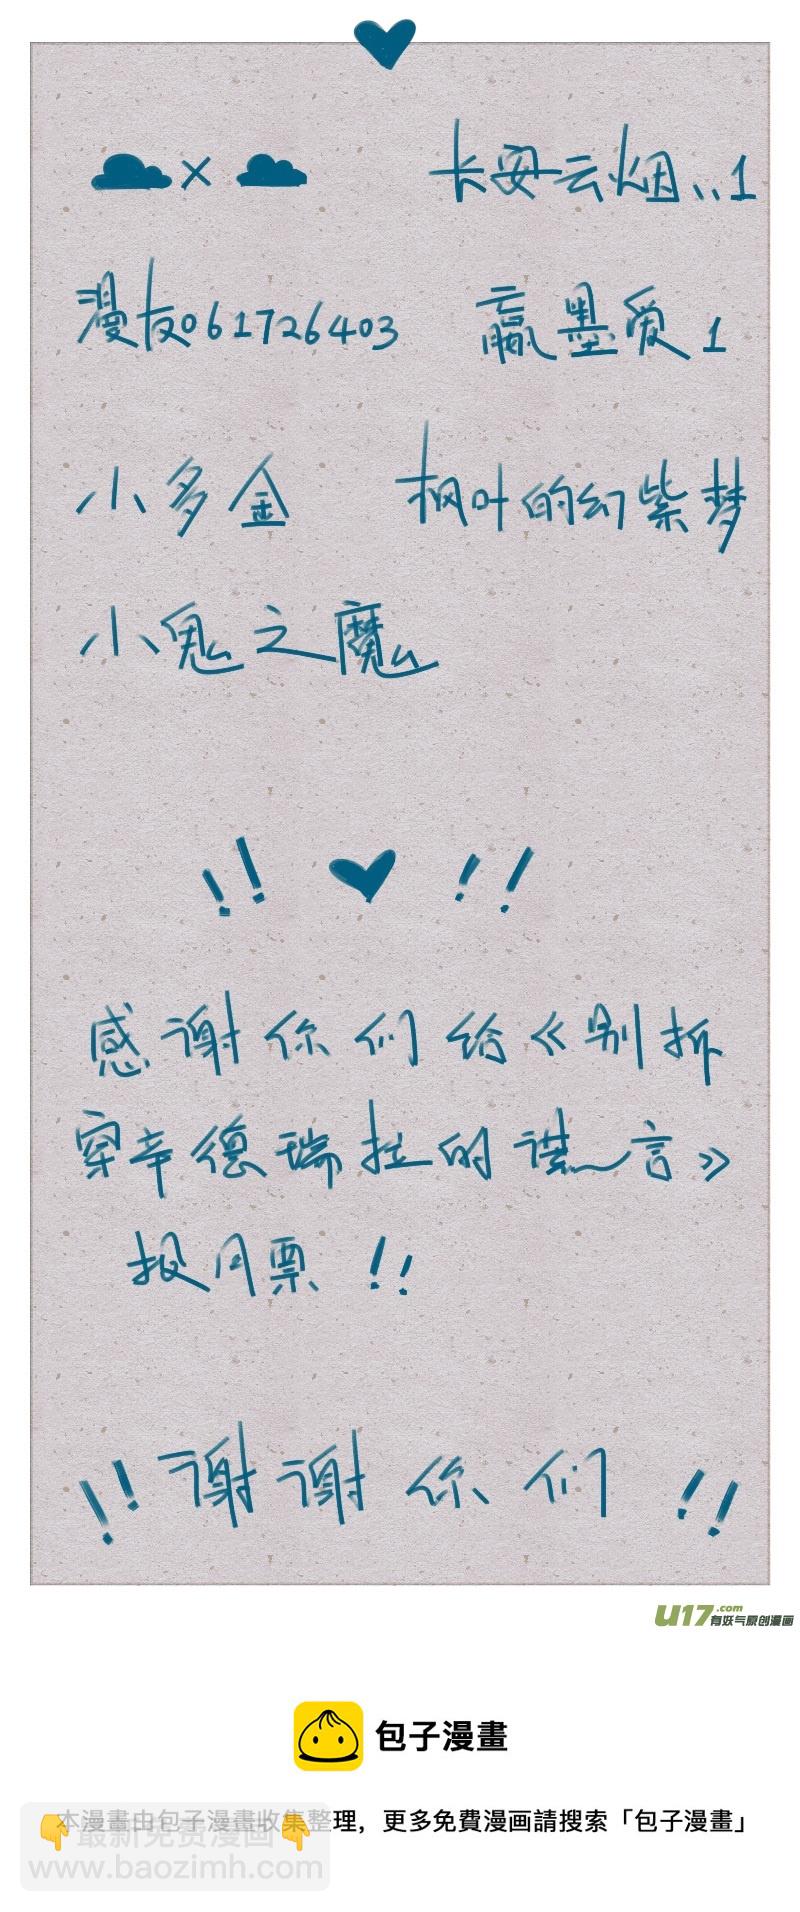 × 长安云烟..1
漫友061726403 赢墨爱1
小多金 枫叶的幻紫梦
小鬼之魔
!! !!
感谢你们给《别拆
穿辛德瑞拉的谎言》
投月票!!
!!谢谢你们!!
U17.com
有妖气原创漫画
包子漫畫
本漫畫由包子漫畫收集整理，更多免費漫画請搜索「包子漫畫」
👇最新免费漫画👇
www.baozimh.com